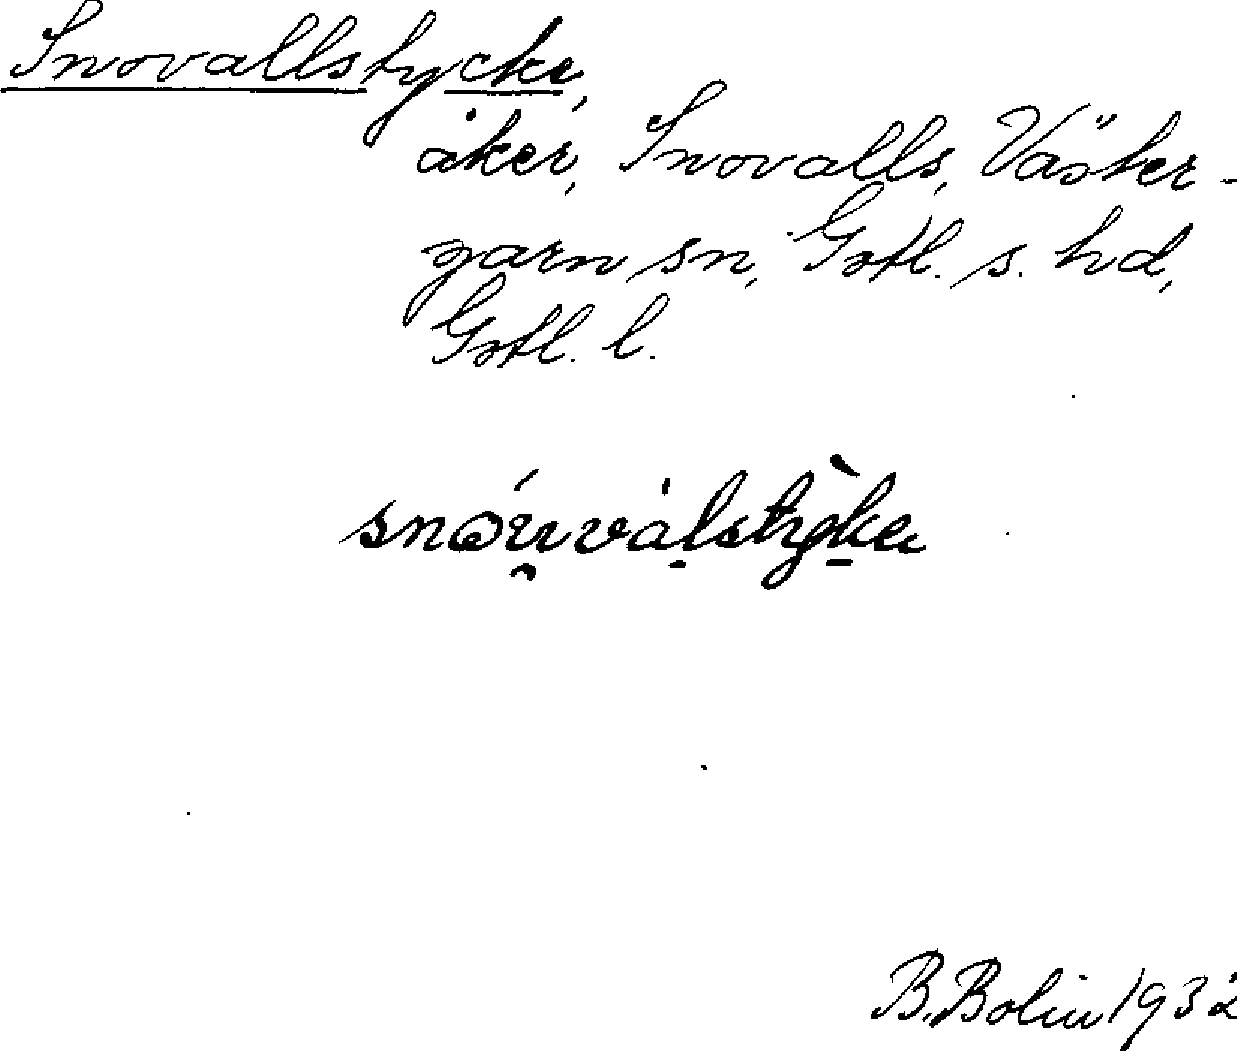 Snovallstycke,
åker, Snovalls, Väster-
garn sn, Gotl. s. hd,
Gotl. l.
B. Bolin 1932